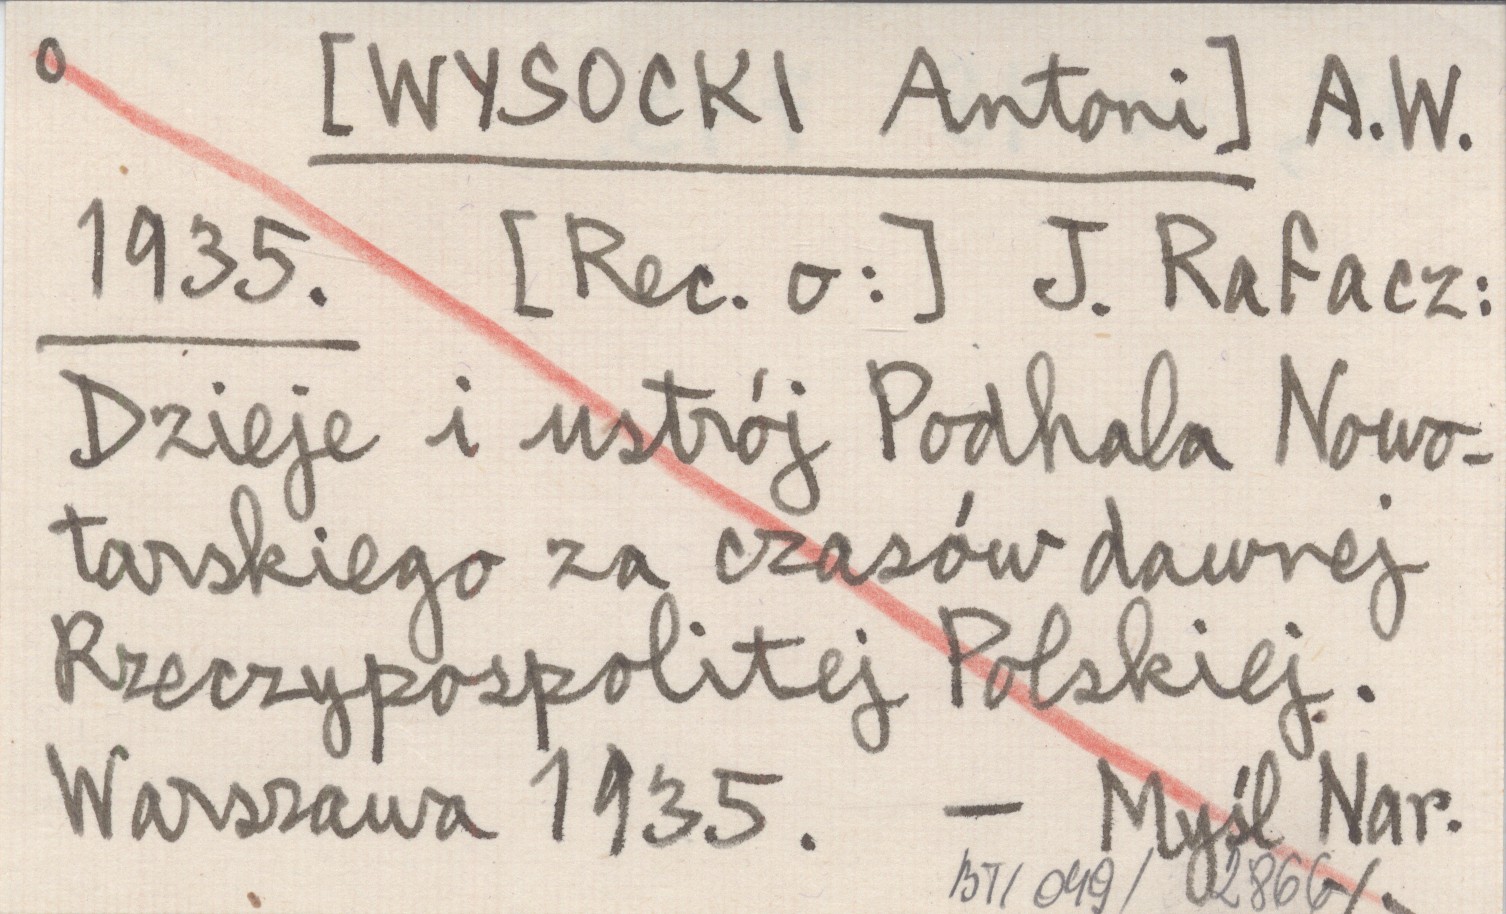 o [WYSOCKI Antoni] A.W.
1935. [Rec. o:] J. Rafacz:
Dzieje i ustrój Podhala Nowo-
tarskiego za czasów dawnej
Rzeczypospolitej Polskiej.
Warszawa 1935. — Myśl Nar.
BTI 049/ 2866/.